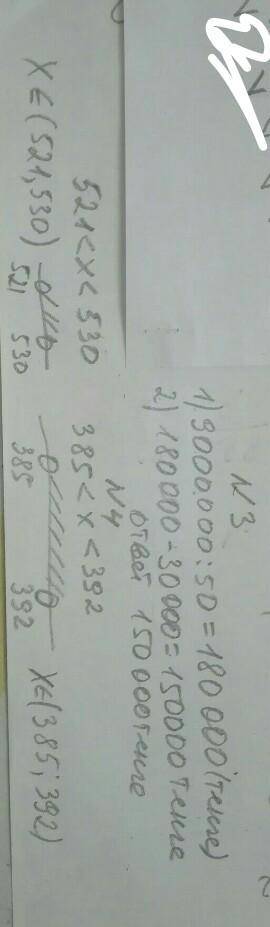 N3
1) 9000.000 : 50 = 180 000 (тенге)
2) 180 000 - 30 000 = 150000 тенге
ответ 150 000 тенге
N4
521 < x < 530
385 < x < 392
x ∈ (521, 530)
521 530
385 392
x ∈ (385; 392)